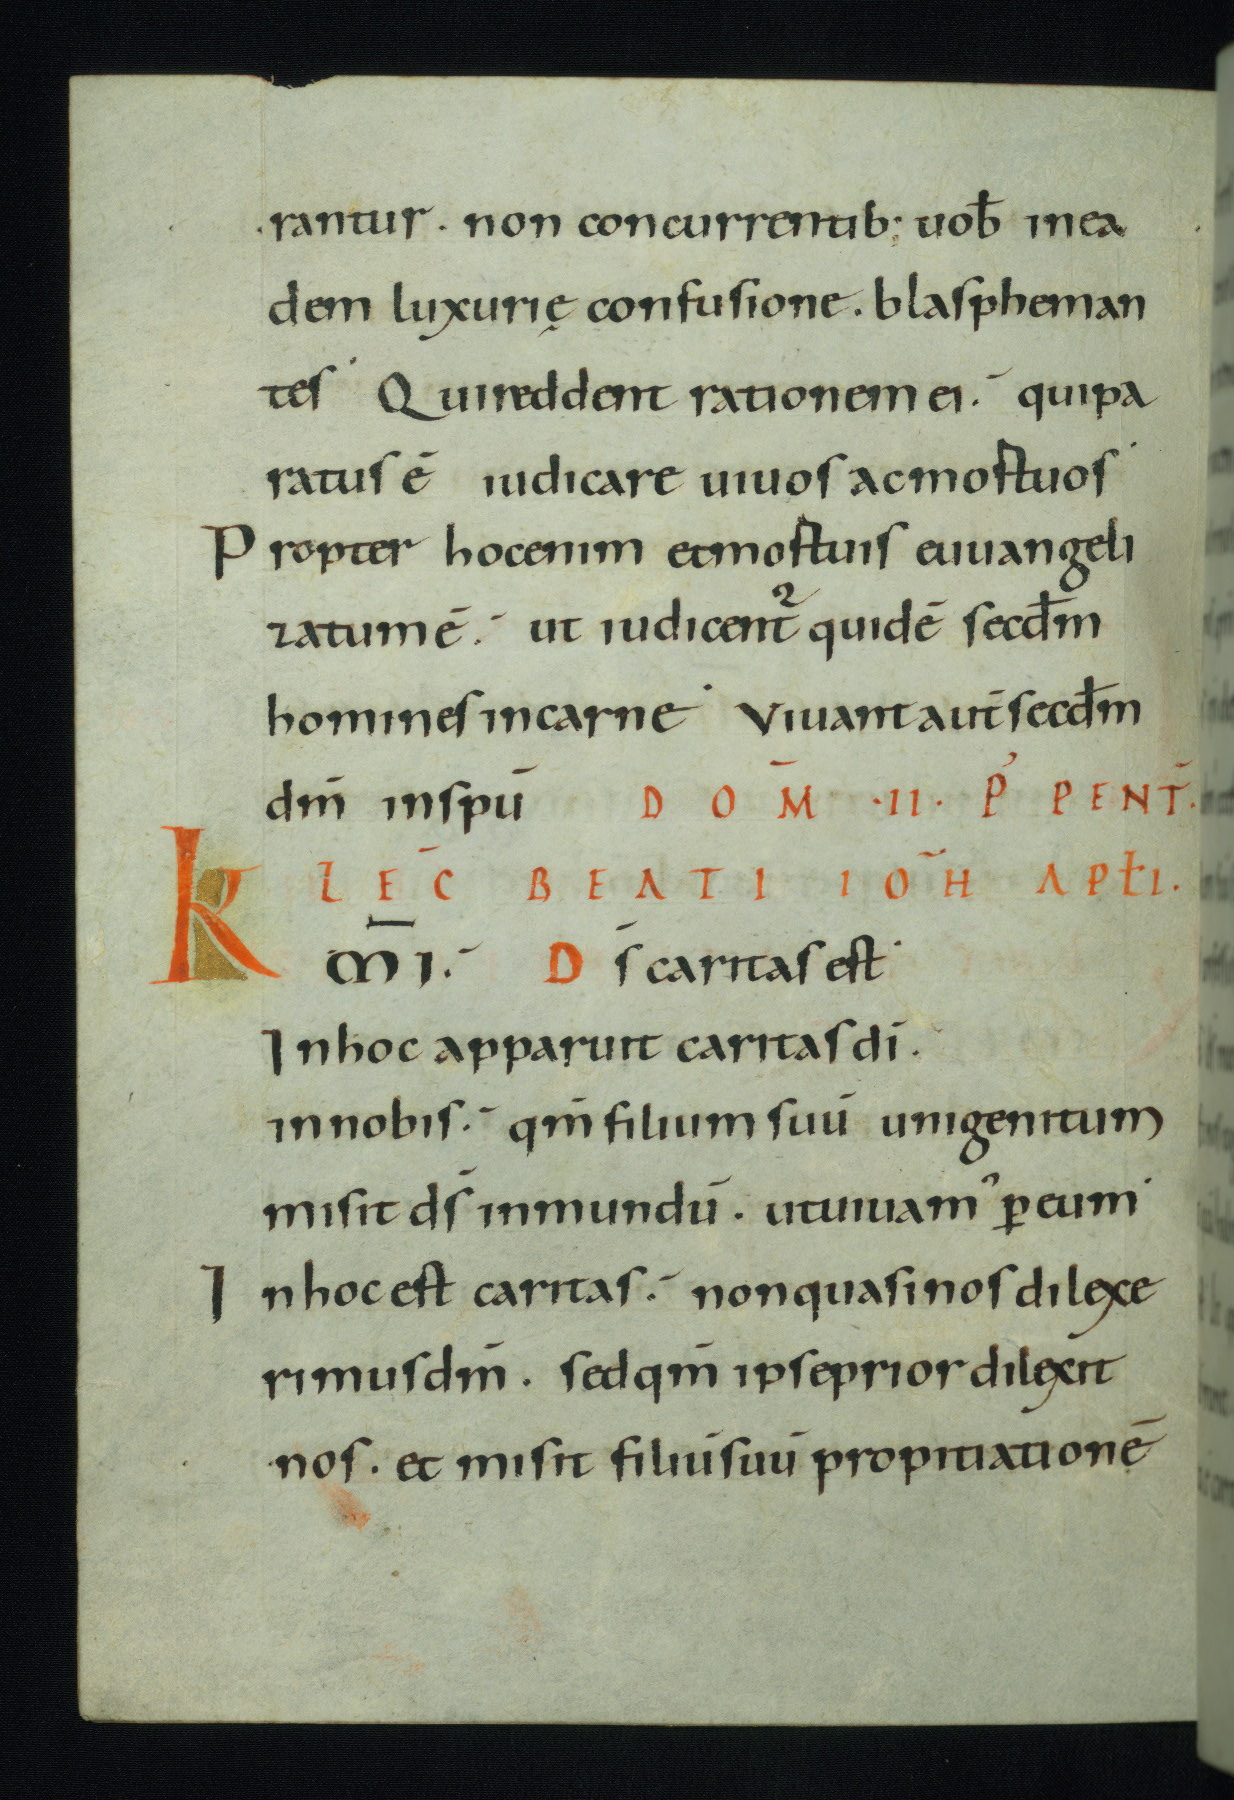 rantur. non concurrentib; uob̄ inea
dem luxurię confusione. blaspheman
tes· Quireddent rationem ei. quipa
ratus ē iudicare uiuos acmortuos·
Propter hocenim etmortuis euuangeli
zatum ē. ut iudicent̄ quidē secd̄m
homines incarne· Viuant aut̄ secd̄m
dm̄ inspū DOM̄ ·II· P' PENT̄.
LEC̄ BEATI IOH̄ APŁI.
K̄M̄I. D s̄ caritas est·
Inhoc apparuit caritas dī.
innobis. qm̄ filium suū unigenitum
misit ds̄ inmundū. utuiuam' ꝑeum·
Inhoc est caritas. nonquasi nos dilexe
rimus dm̄. sedqm̄ ipseprior dilexit
nos. et misit filiū suū propitiationē